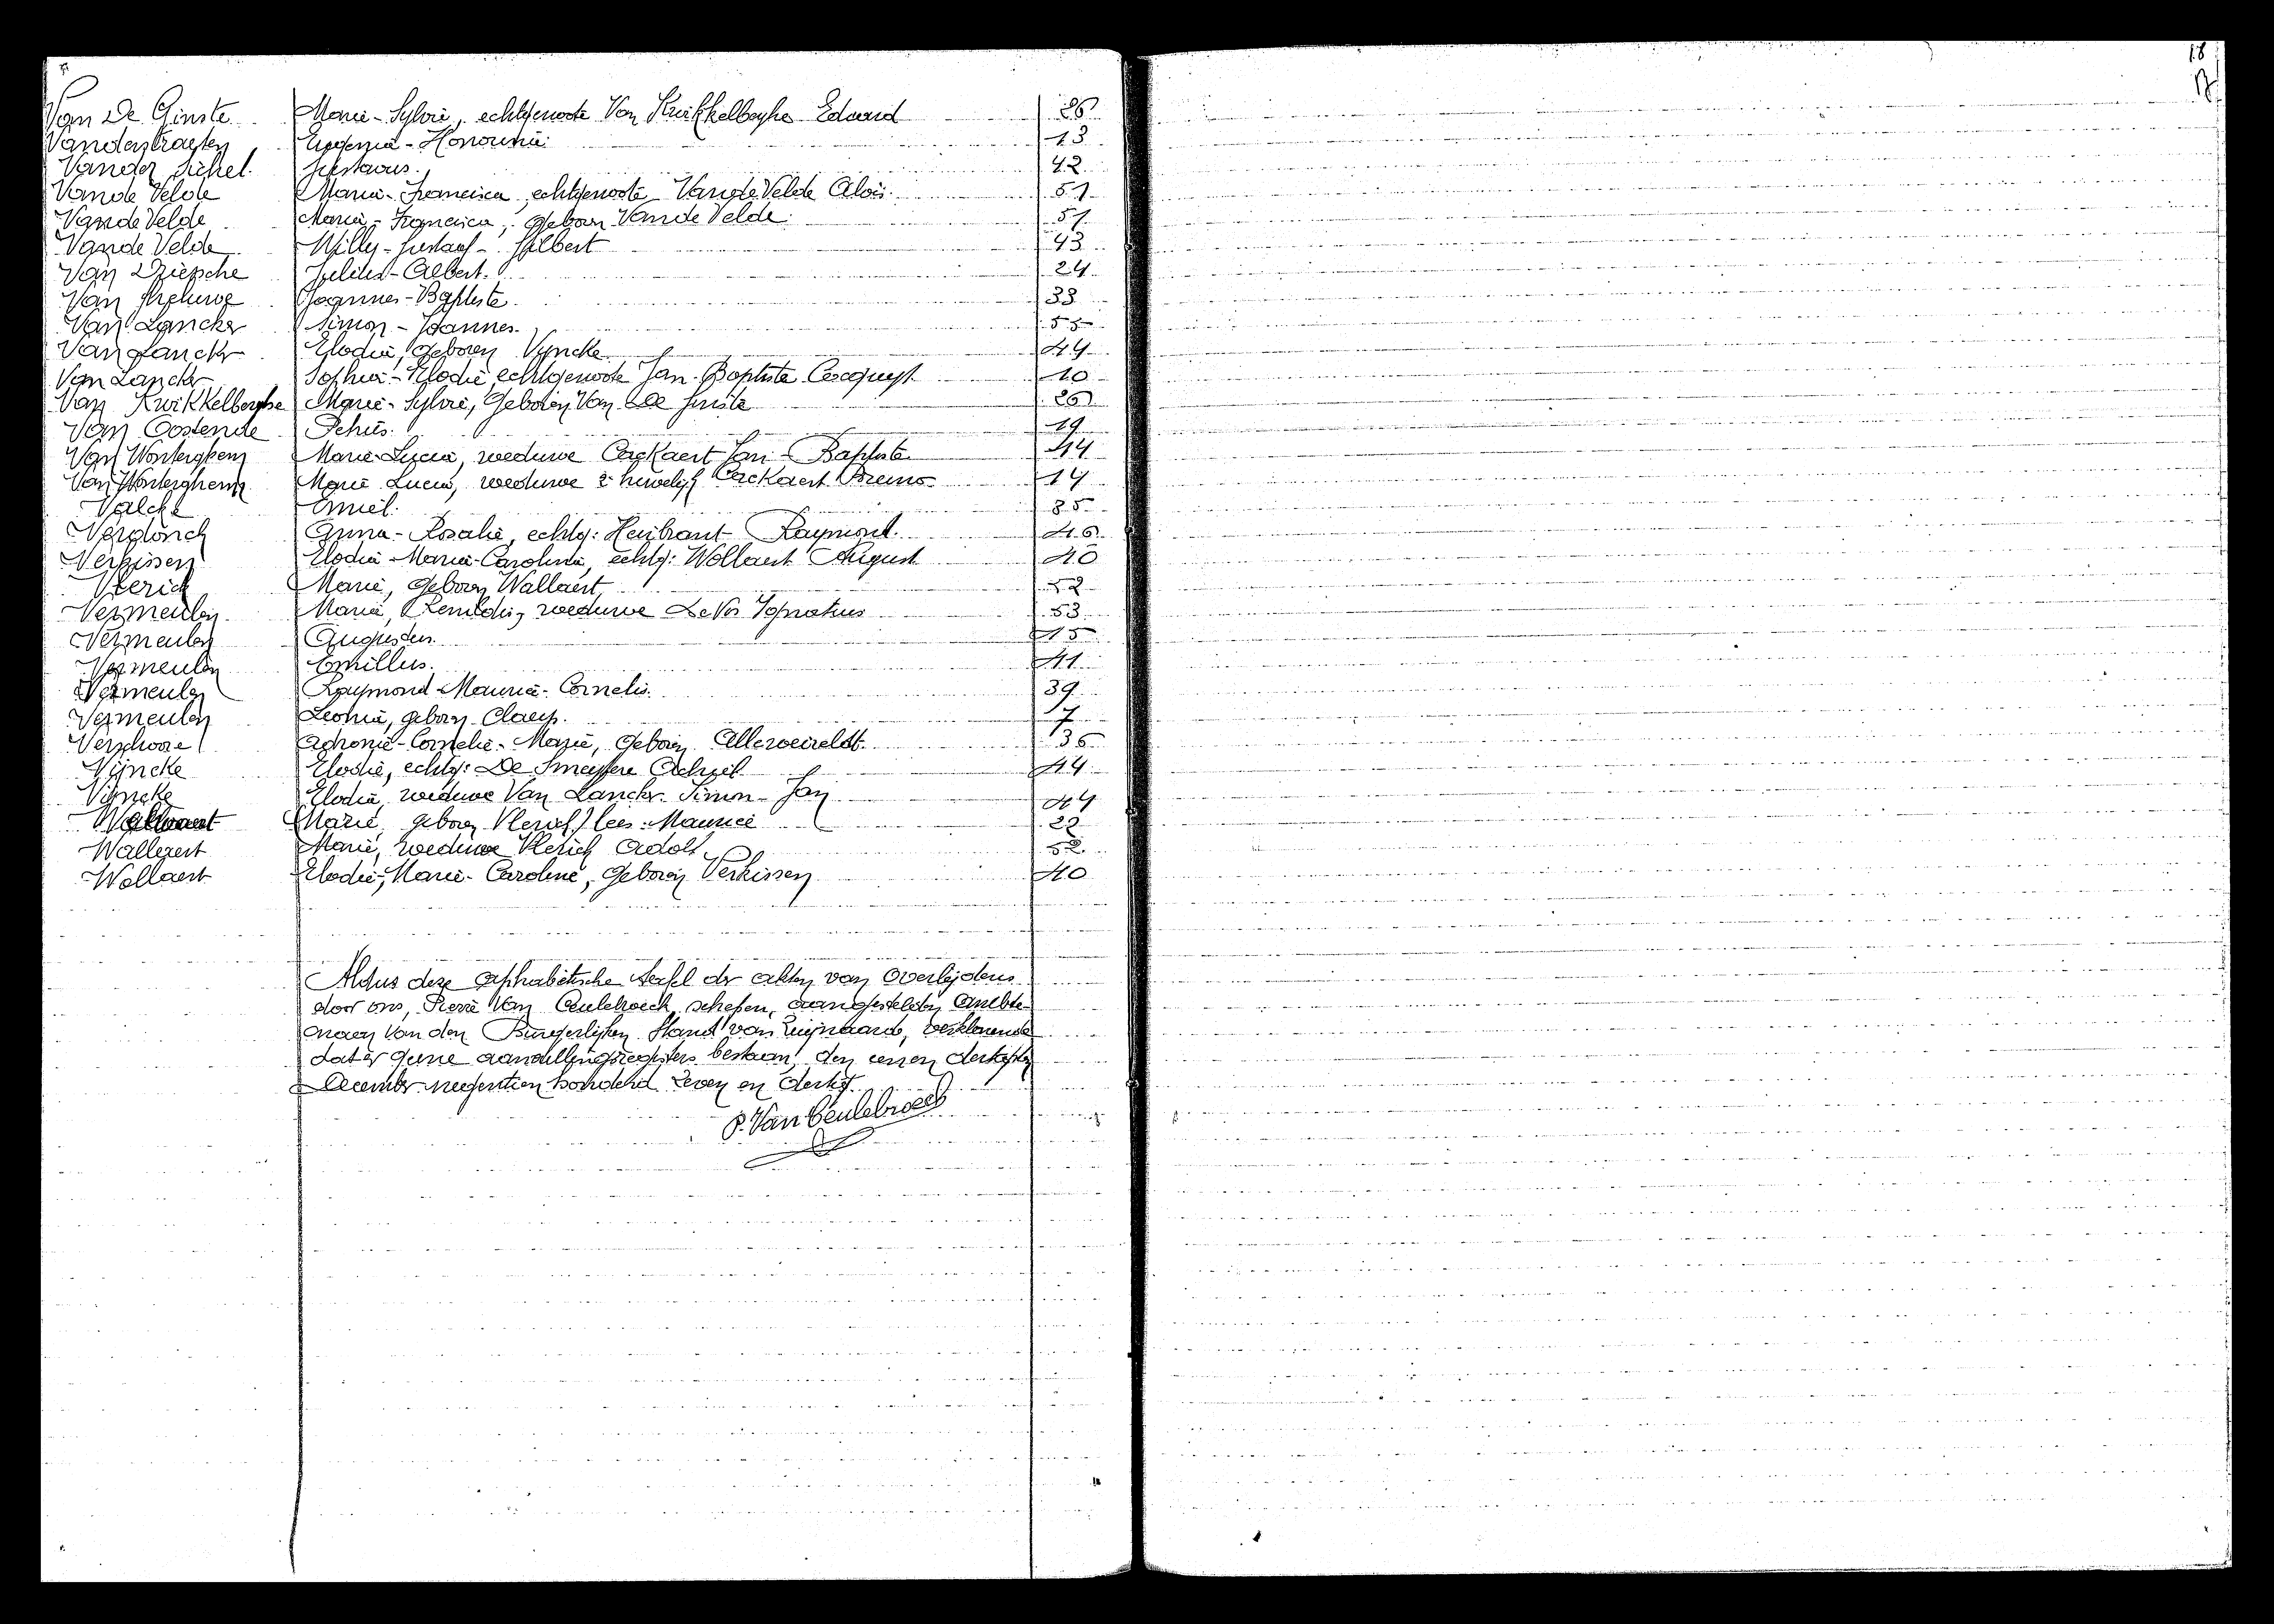 18
17
Van De Ginste Marie-Sylvie, echtgenoote Van Kwikkelberghe Eduard 26
Vanderstraeten Eugenia-Honorina 13
Vander Sichel Gustavus. 42
Van de Velde Maria-Francisca, echtgenoote Van de Velde Aloïs 51
Van de Velde Maria-Francisca, geboren Van de Velde 51
Van de Velde Willy-Gustaaf-Gilbert 43
Van Driessche Julius-Albert. 24
Van Joannes-Baptiste. 33
Van Lancker Simon-Joannes. 55
Van Lancker Elodia, geboren Vyncke 44
Van Lancker Sophia-Elodie, echtgenoote Jan-Baptiste Cocquyt 10
Van Kwikkelberghe Marie-Sylvie, geboren Van De Ginste 26
Van Oostende Petrus. 19
Van Wonterghem Marie-Lucia, weduwe Caekaert Jan-Baptiste 14
Van Wonterghem Marie Lucia, weduwe 2e huwelijk Caekaert Bruno 14
Valcke Emiel. 35
Verdonck Anna-Rosalie, echtg: Heibrant Raymond. 46
Verkissen Elodia-Maria-Carolina, echtg: Wollaert August 40
Vlerick Marie, geboren Wallaert, 52
Vermeulen Maria, Remildis, weduwe De Vos Ignatius 53
Vermeulen Augustus. 15
Vermeulen Emillus. 41
Vermeulen Raymond-Maurice-Cornelis. 39
Vermeulen Leonia, geboren Claeys. 7
Verschoore Marie, geboren Allerweireldt. 36
Vijncke Elodie, echtg: De Smeytere Achiel 44
Vijncke Elodia, weduwe Van Lancker Simon-Jan 44
Marie, geboren Vlerick / lees: Maurice 22
Wallaert Marie, weduwe Vlerick Adolf. 52
Wollaert Elodie-Marie-Caroline, geboren Verkissen 40
Aldus deze alphabetische tafel der akten van Overlijdens
door ons, Pierre Van Ceulebroeck, schepen, aangestelden Ambte-
naar van den Burgerlijken Stand van Zwijnaarde, verklarende
dat er geene aanvullingsregisters bestaan, den eenen dertigsten
December negentien honderd zeven en dertig.
P. Van Ceulebroeck